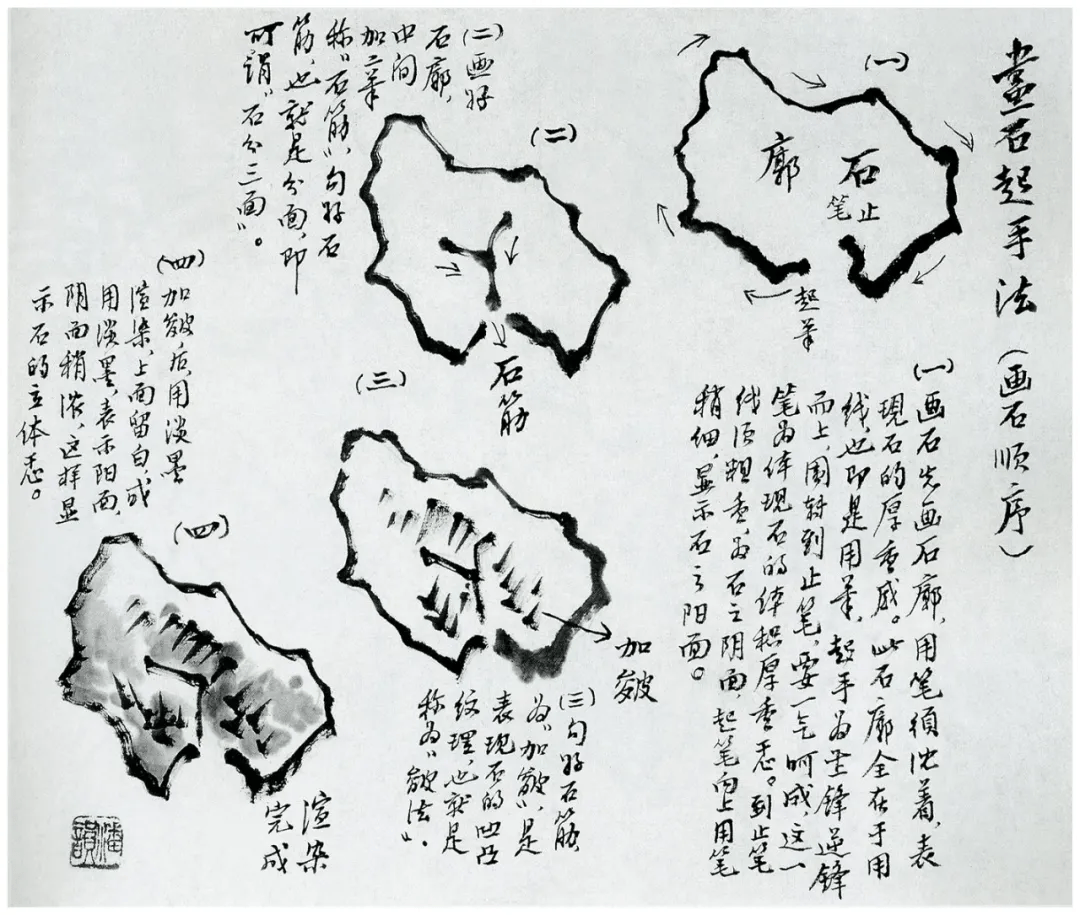 畫石起手法（画石顺序）
(一)
石
廓
止
笔
起笔
(一)画石先画石廓，用笔须沈着，表
现石的厚重感。此石廓全在于用
线，也即是用笔，起手为坐锋逆锋
而上，围转到止笔，要一气呵成，这一
笔为体现石的体积厚重感。到止笔
线须粗重，为石之阴面，起笔向上用笔
稍细，显示石之阳面。
(二)画好
石廓，
中间
加二笔
称“石筋”，勾好石
筋，也就是分面，即
可谓“石分三面”。
(二)
石筋
(三)
加皴
(三)勾好石筋，
为“加皴”，是
表现石的凹凸
纹理，也就是
称为“皴法”。
(四)加皴后，用淡墨
渲染，上面留白，或
用淡墨，表示阳面，
阴面稍浓，这样显
示石的立体感。
(四)
渲染
完成